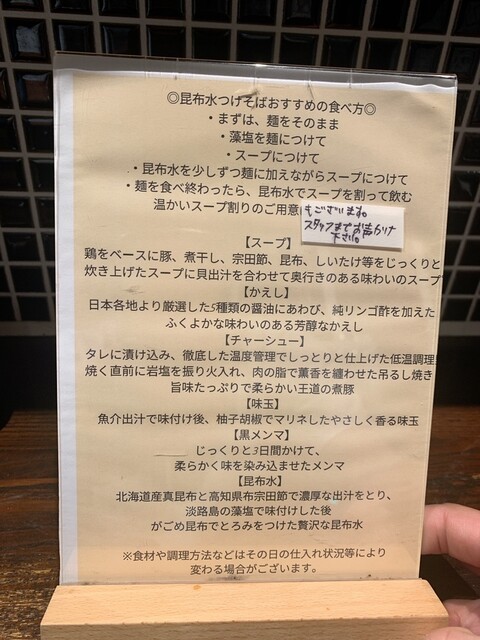 ◎昆布水つけそばおすすめの食べ方◎
・まずは、麺をそのまま
・藻塩を麺につけて
・スープにつけて
・昆布水を少しずつ麺に加えながらスープにつけて
・麺を食べ終わったら、昆布水でスープを割って飲む
温かいスープ割りのご用意もございます。
スタッフまでお声かけ
下さい。
【スープ】
鶏をベースに豚、煮干し、宗田節、昆布、しいたけ等をじっくりと
炊き上げたスープに貝出汁を合わせて奥行きのある味わいのスープ
【かえし】
日本各地より厳選した5種類の醤油にあわび、純リンゴ酢を加えた
ふくよかな味わいのある芳醇なかえし
【チャーシュー】
タレに漬け込み、徹底した温度管理でしっとりと仕上げた低温調理
焼く直前に岩塩を振り火入れ、肉の脂で薫香を纏わせた吊るし焼き
旨味たっぷりで柔らかい王道の煮豚
【味玉】
魚介出汁で味付け後、柚子胡椒でマリネしたやさしく香る味玉
【黒メンマ】
じっくりと3日間かけて、
柔らかく味を染み込ませたメンマ
【昆布水】
北海道産真昆布と高知県布宗田節で濃厚な出汁をとり、
淡路島の藻塩で味付けした後
がごめ昆布でとろみをつけた贅沢な昆布水
※食材や調理方法などはその日の仕入れ状況等により
変わる場合がございます。